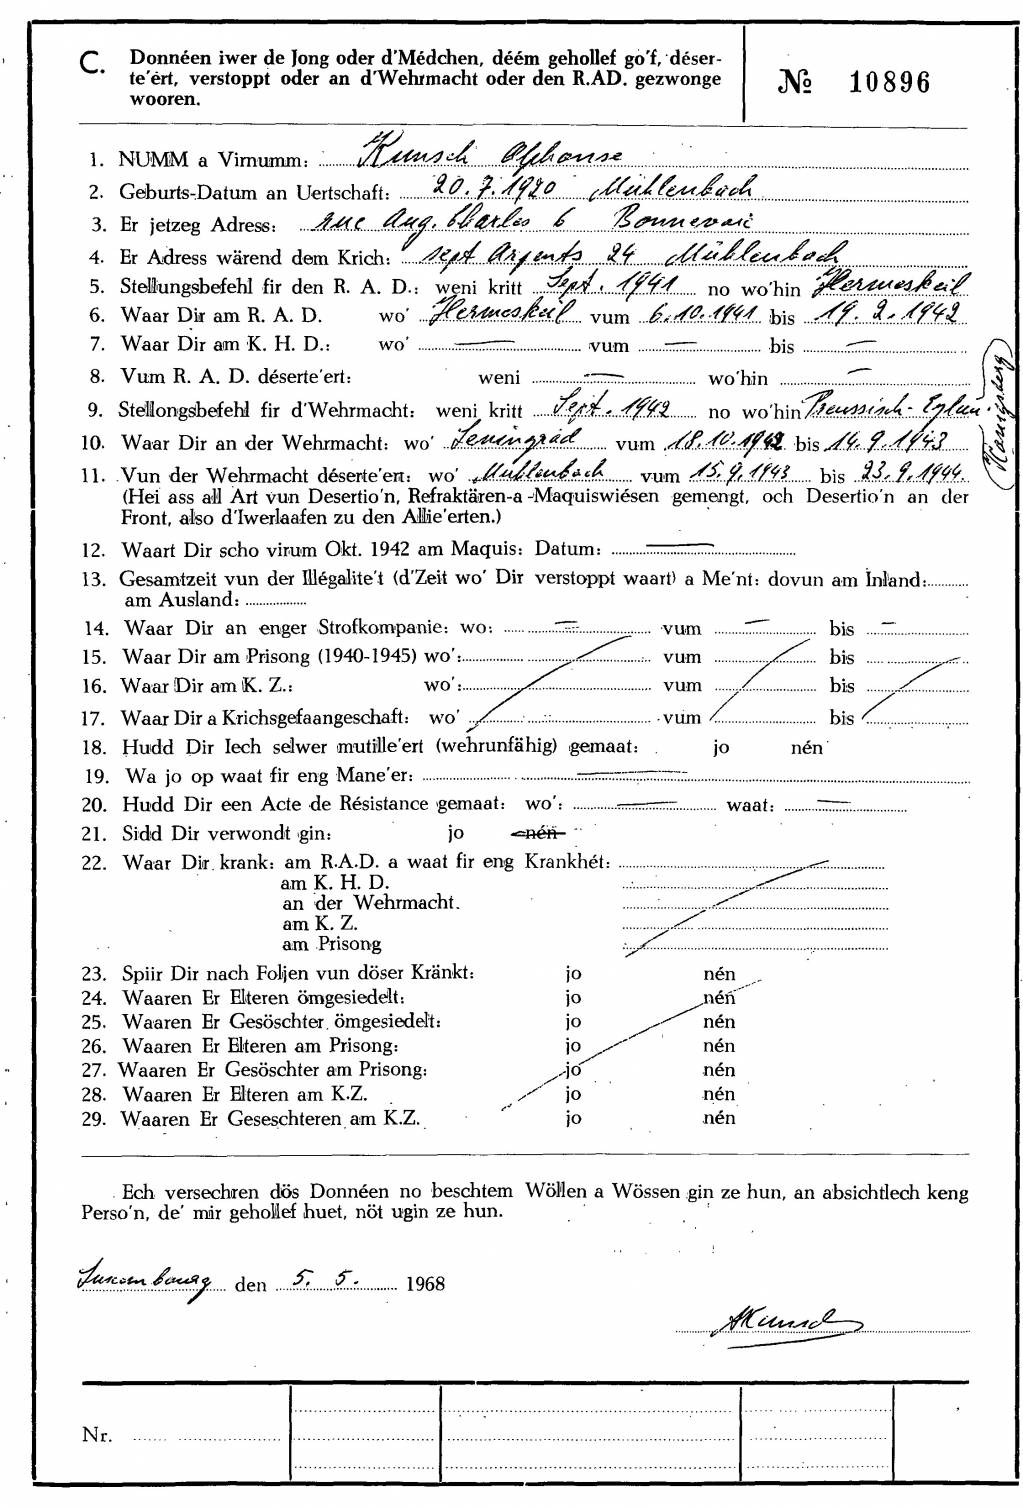 C. Donnéen iwer de Jong oder d'Médchen, déém gehollef go'f, déser-
te'ért, verstoppt oder an d'Wehrmacht oder den R.AD. gezwonge
wooren.
№ 10896
1. NUMM a Virnumm: Kunsch Alphonse
2. Geburts-Datum an Uertschaft: 20.7.1920 Mühlenbach
3. Er jetzeg Adress: rue Aug. Charles 6 Bonnevoie
4. Er Adress wärend dem Krich: sept Arpents 24 Mühlenbach
5. Stellungsbefehl fir den R. A. D.: weni kritt Sept. 1941 no wo'hin Hermeskeil
6. Waar Dir am R. A. D. wo' Hermeskeil vum 6.10.1941 bis 19.2.1942
7. Waar Dir am K. H. D.: wo' — vum — bis —
8. Vum R. A. D. déserte'ert: weni — wo'hin —
9. Stellongsbefehl fir d'Wehrmacht: weni kritt Sept. 1942 no wo'hin Preussisch-Eylau
(Königsberg)
10. Waar Dir an der Wehrmacht: wo' Leningrad vum 18.10.1942 bis 14.9.1943
11. Vun der Wehrmacht déserte'ert: wo' Mühlenbach vum 15.9.1943 bis 23.9.1944.
(Hei ass all Art vun Desertio'n, Refraktären-a-Maquiswiésen gemengt, och Desertio'n an der
Front, also d'Iwerlaafen zu den Allie'erten.)
12. Waart Dir scho virum Okt. 1942 am Maquis: Datum: —
13. Gesamtzeit vun der Illégalite't (d'Zeit wo' Dir verstoppt waart) a Me'nt: dovun am Inland:
am Ausland:
14. Waar Dir an enger Strofkompanie: wo: — vum — bis —
15. Waar Dir am Prisong (1940-1945) wo': vum bis
16. Waar Dir am K. Z.: wo': vum bis
17. Waar Dir a Krichsgefaangeschaft: wo' vum bis
18. Hudd Dir Iech selwer mutille'ert (wehrunfähig) gemaat: jo nén
19. Wa jo op waat fir eng Mane'er: —
20. Hudd Dir een Acte de Résistance gemaat: wo': — waat: —
21. Sidd Dir verwondt gin: jo nén
22. Waar Dir krank: am R.A.D. a waat fir eng Krankhét:
am K. H. D.
an der Wehrmacht.
am K. Z.
am Prisong
23. Spiir Dir nach Foljen vun döser Kränkt: jo nén
24. Waaren Er Elteren ömgesiedelt: jo nén
25. Waaren Er Gesöschter ömgesiedelt: jo nén
26. Waaren Er Elteren am Prisong: jo nén
27. Waaren Er Gesöschter am Prisong: jo nén
28. Waaren Er Elteren am K.Z. jo nén
29. Waaren Er Geseschteren am K.Z. jo nén
Ech versechren dös Donnéen no beschtem Wöllen a Wössen gin ze hun, an absichtlech keng
Perso'n, de' mir gehollef huet, nöt ugin ze hun.
Luxembourg den 5. 5. 1968
AKunsch
Nr.